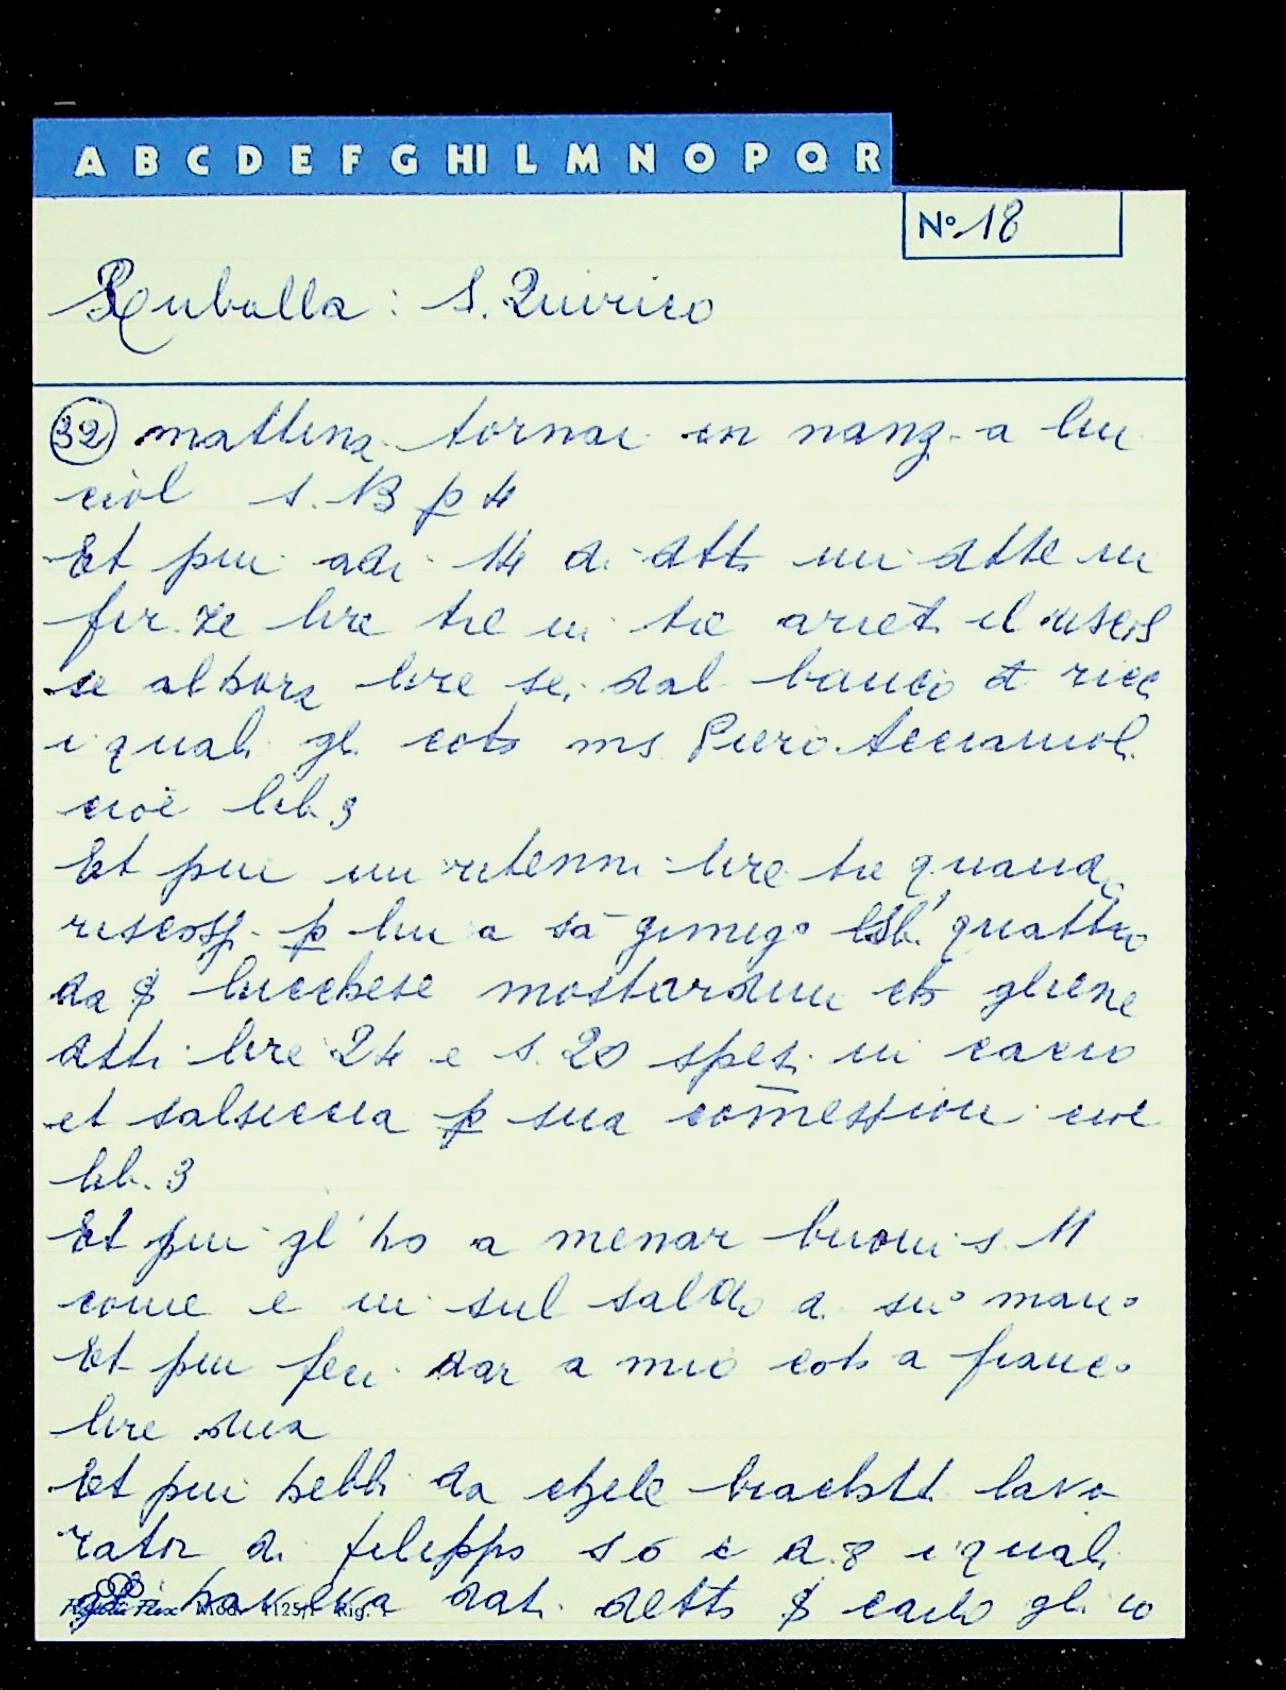 A B C D E F G HI L M N O P Q R
Nº 18
Ruballa: S. Quirico
32 mattina tornar in nanz. a lu
ciol s. 13 p 4
Et piu adi 14 d. dtt mi dtte in
fir.ze lire tre in tre ariet. il
se alhora lire sei dal banco d ricc
i quali gl. cots ms Piero Acciaiuol.
cioè lib. 3
Et piu mi ritenni lire tre quand
riscossi p lui a sā gimig° lib. quattro
da lucchese mostardini ets gliene
dtti lire 24 e s. 20 spesi in cacio
et salsiccia p sua comessioni cioe
lib. 3
Et piu gl' ho a menar buoni s. 11
come e in sul saldo d. su° man°
Et piu feci dar a mio cots a franc°
lire dua
Et piu hebbi da chele lavo
rator di filippo s 6 e d. 8 i quali
haveva dati detts carlo gl. io